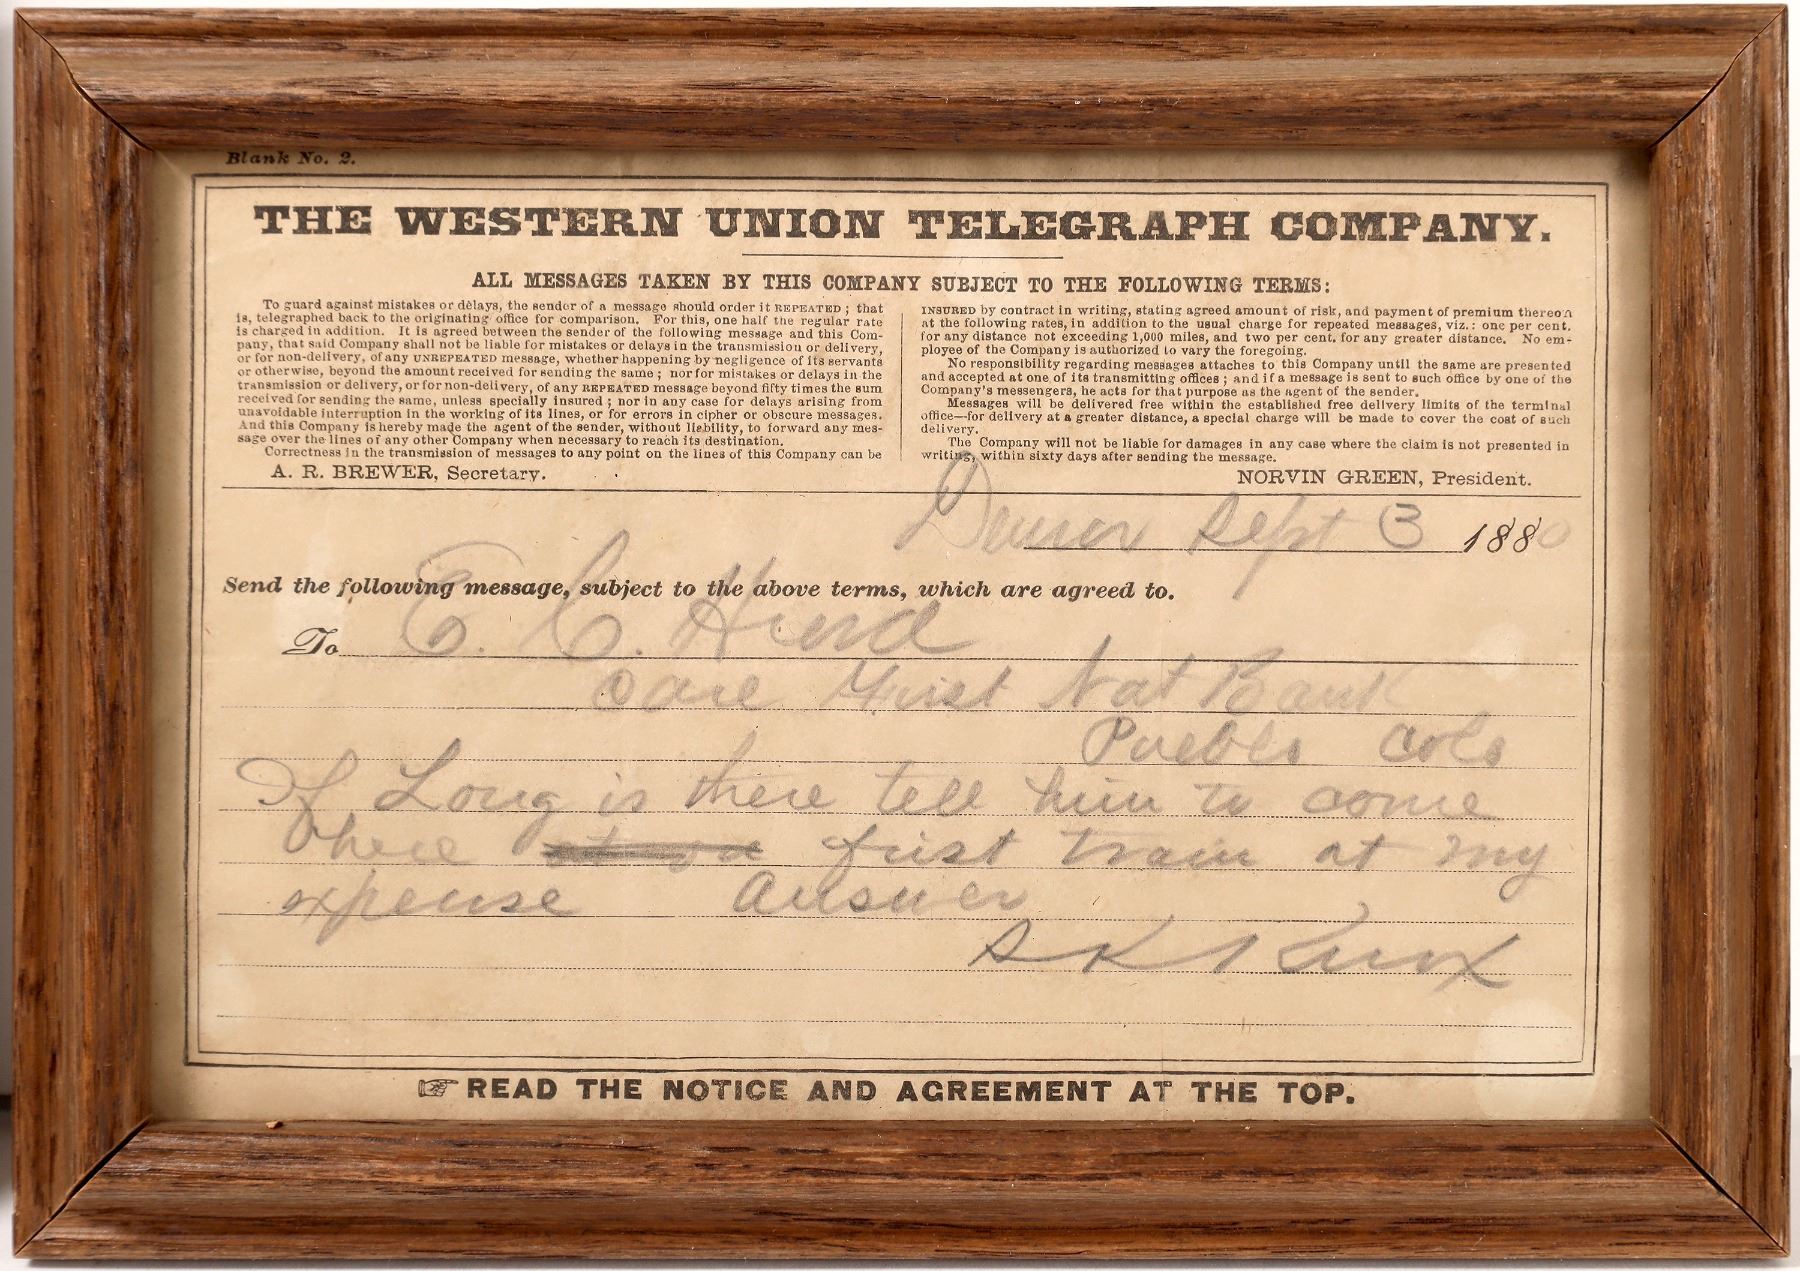 Blank No. 2.
THE WESTERN UNION TELEGRAPH COMPANY.
ALL MESSAGES TAKEN BY THIS COMPANY SUBJECT TO THE FOLLOWING TERMS:
To guard against mistakes or delays, the sender of a message should order it REPEATED; that
is, telegraphed back to the originating office for comparison. For this, one half the regular rate
is charged in addition. It is agreed between the sender of the following message and this Com-
pany, that said Company shall not be liable for mistakes or delays in the transmission or delivery,
or for non-delivery, of any UNREPEATED message, whether happening by negligence of its servants
or otherwise, beyond the amount received for sending the same; nor for mistakes or delays in the
transmission or delivery, or for non-delivery, of any REPEATED message beyond fifty times the sum
received for sending the same, unless specially insured; nor in any case for delays arising from
unavoidable interruption in the working of its lines, or for errors in cipher or obscure messages.
And this Company is hereby made the agent of the sender, without liability, to forward any mes-
sage over the lines of any other Company when necessary to reach its destination.
Correctness in the transmission of messages to any point on the lines of this Company can be
INSURED by contract in writing, stating agreed amount of risk, and payment of premium thereon
at the following rates, in addition to the usual charge for repeated messages, viz.: one per cent.
for any distance not exceeding 1,000 miles, and two per cent. for any greater distance. No em-
ployee of the Company is authorized to vary the foregoing.
No responsibility regarding messages attaches to this Company until the same are presented
and accepted at one of its transmitting offices; and if a message is sent to such office by one of the
Company's messengers, he acts for that purpose as the agent of the sender.
Messages will be delivered free within the established free delivery limits of the terminal
office—for delivery at a greater distance, a special charge will be made to cover the cost of such
delivery.
The Company will not be liable for damages in any case where the claim is not presented in
writing, within sixty days after sending the message.
A. R. BREWER, Secretary.
NORVIN GREEN, President.
Denver Sept 3 1880
Send the following message, subject to the above terms, which are agreed to.
To E. C. Hurd
Care First Nat Bank
Pueblo Colo
If Long is there tell him to come
here first train at my
expense Answer
S K Knox
☞ READ THE NOTICE AND AGREEMENT AT THE TOP.